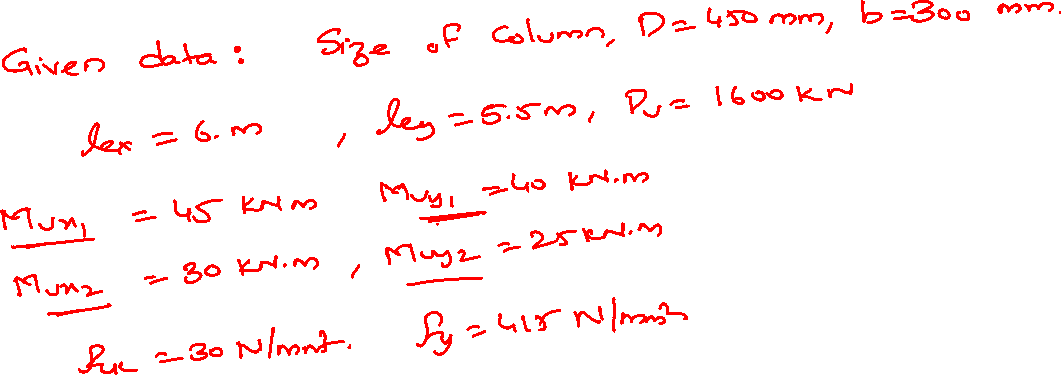 Given data : Size of Column, D = 450 mm, b = 300 mm.
lex = 6.m , ley = 5.5m, Pu = 1600 KN
Mux1 = 45 KN m Muy1 = 40 KN.m
Mux2 = 30 KN.m , Muy2 = 25 KN.m
fck = 30 N/mm². fy = 415 N/mm²